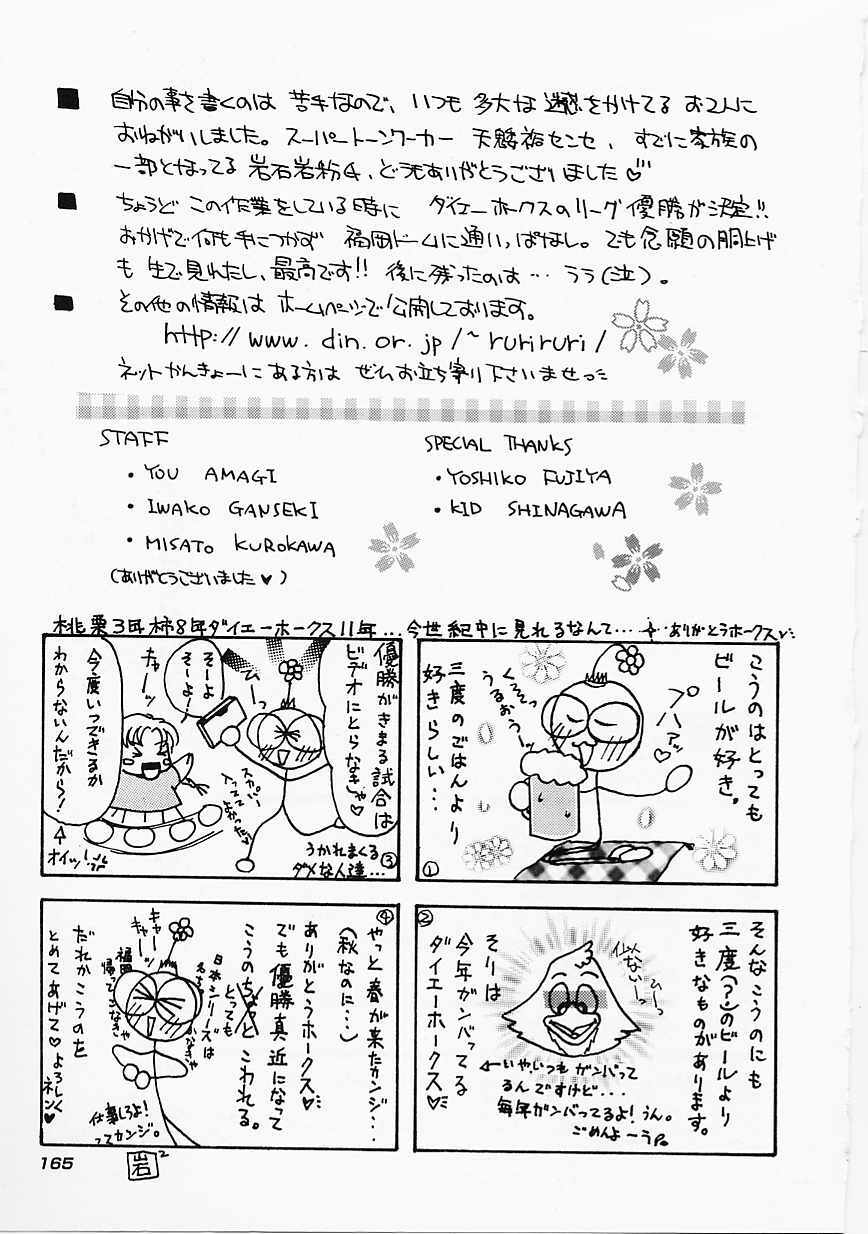 ■ 自分の事を書くのは 苦手なので、いつも 多大な 迷惑をかけてる お2人に
おねがいしました。スーパートーンワーカー 天鬘裕センセ、すでに家族の
一部となってる 岩石岩粉4、どうもありがとうございました♡
■ ちょうど この作業をしている時に ダイエーホークスのリーグ優勝が決定!!
おかげで何も手につかず 福岡ドームに通いっぱなし。でも念願の胴上げ
も 生で見れたし、最高です!! 後に残ったのは… うう(泣)。
■ その他の情報は ホームページで公開しております。
http://www.din.or.jp/~ruriruri/
ネットかんきょーにある方は ぜひお立ち寄り下さいませっ
STAFF
・YOU AMAGI
・IWAKO GANSEKI
・MISATO KUROKAWA
(ありがとうございました♥)
SPECIAL THANKS
・YOSHIKO FUJIYA
・KID SHINAGAWA
桃栗3年柿8年ダイエーホークス11年…今世紀中に見れるなんて…ありがとうホークス♡
こうのはとっても
ビールが好き。
プハァッ
♡
くぅそっ
うるおうーッ
三度のごはんより
好きらしい…
①
②
そんなこうのにも
三度(?)のビールより
好きなものがあります。
似てないーっ
ひーっ
そりは
今年ガンバってる
ダイエーホークス♡
←いや、いつもガンバって
るんですけど...
毎年ガンバってるよ!うん。
ごめんよーうっ。
優勝がきまる試合は
ビデオにとらなきゃ♡
ひーっ
スカパー!
入ってて
よかった♡
そーよ
そーよ!
キャーッ
今度いつできるか
わからないんだから!
オイッ!
うかれまくる
ダメな人達…
③
④
やっと春が来たカンジ…
(秋なのに…)
ありがとうホークス♡
でも優勝真近になって
こうのちょっと
とっても
こわれる。
日本シリーズは
キャー
キャーッ
福岡
帰ってこなきゃ
だれかこうのを
とめてあげて♡よろしく
ネン♥
仕事しろよ!
ってカンジ。
165
岩
2